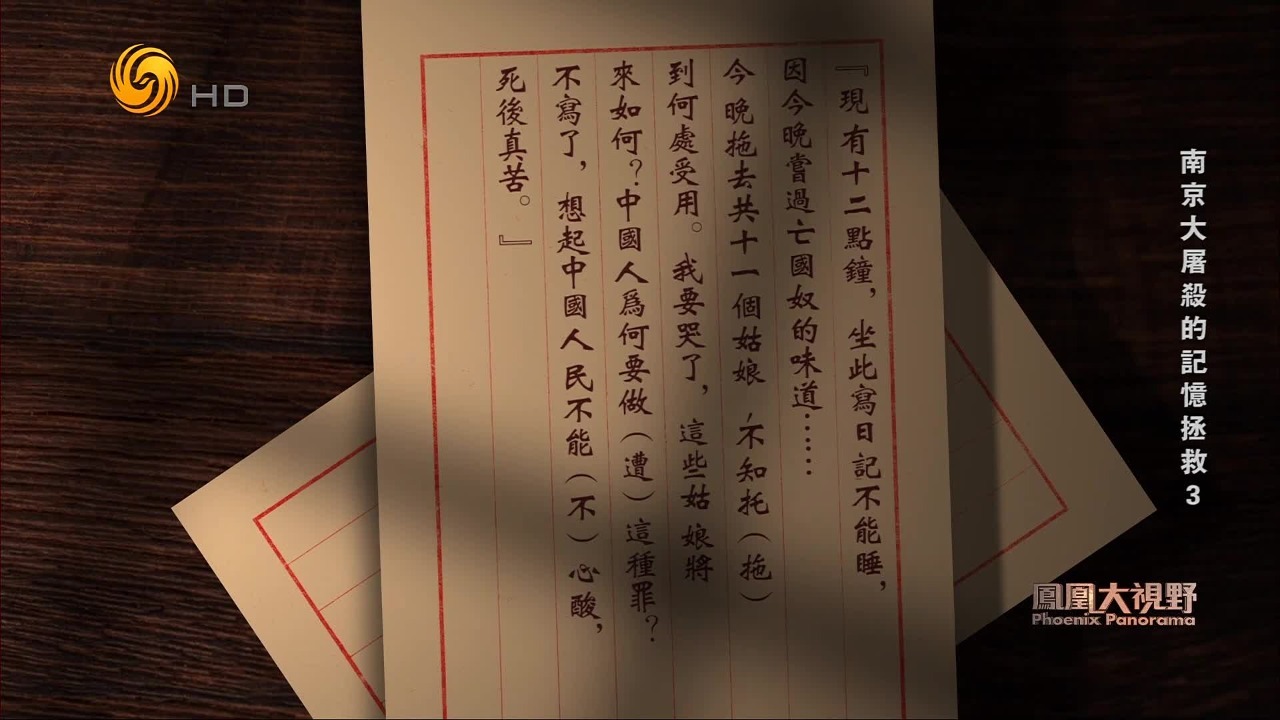 『現有十二點鐘，坐此寫日記不能睡，
因今晚嘗過亡國奴的味道……
今晚拖去共十一個姑娘，不知托（拖）
到何處受用。我要哭了，這些姑娘將
來如何？中國人爲何要做（遭）這種罪？
不寫了，想起中國人民不能（不）心酸，
死後真苦。』
南京大屠殺的記憶拯救3
HD
鳳凰大視野
Phoenix Panorama